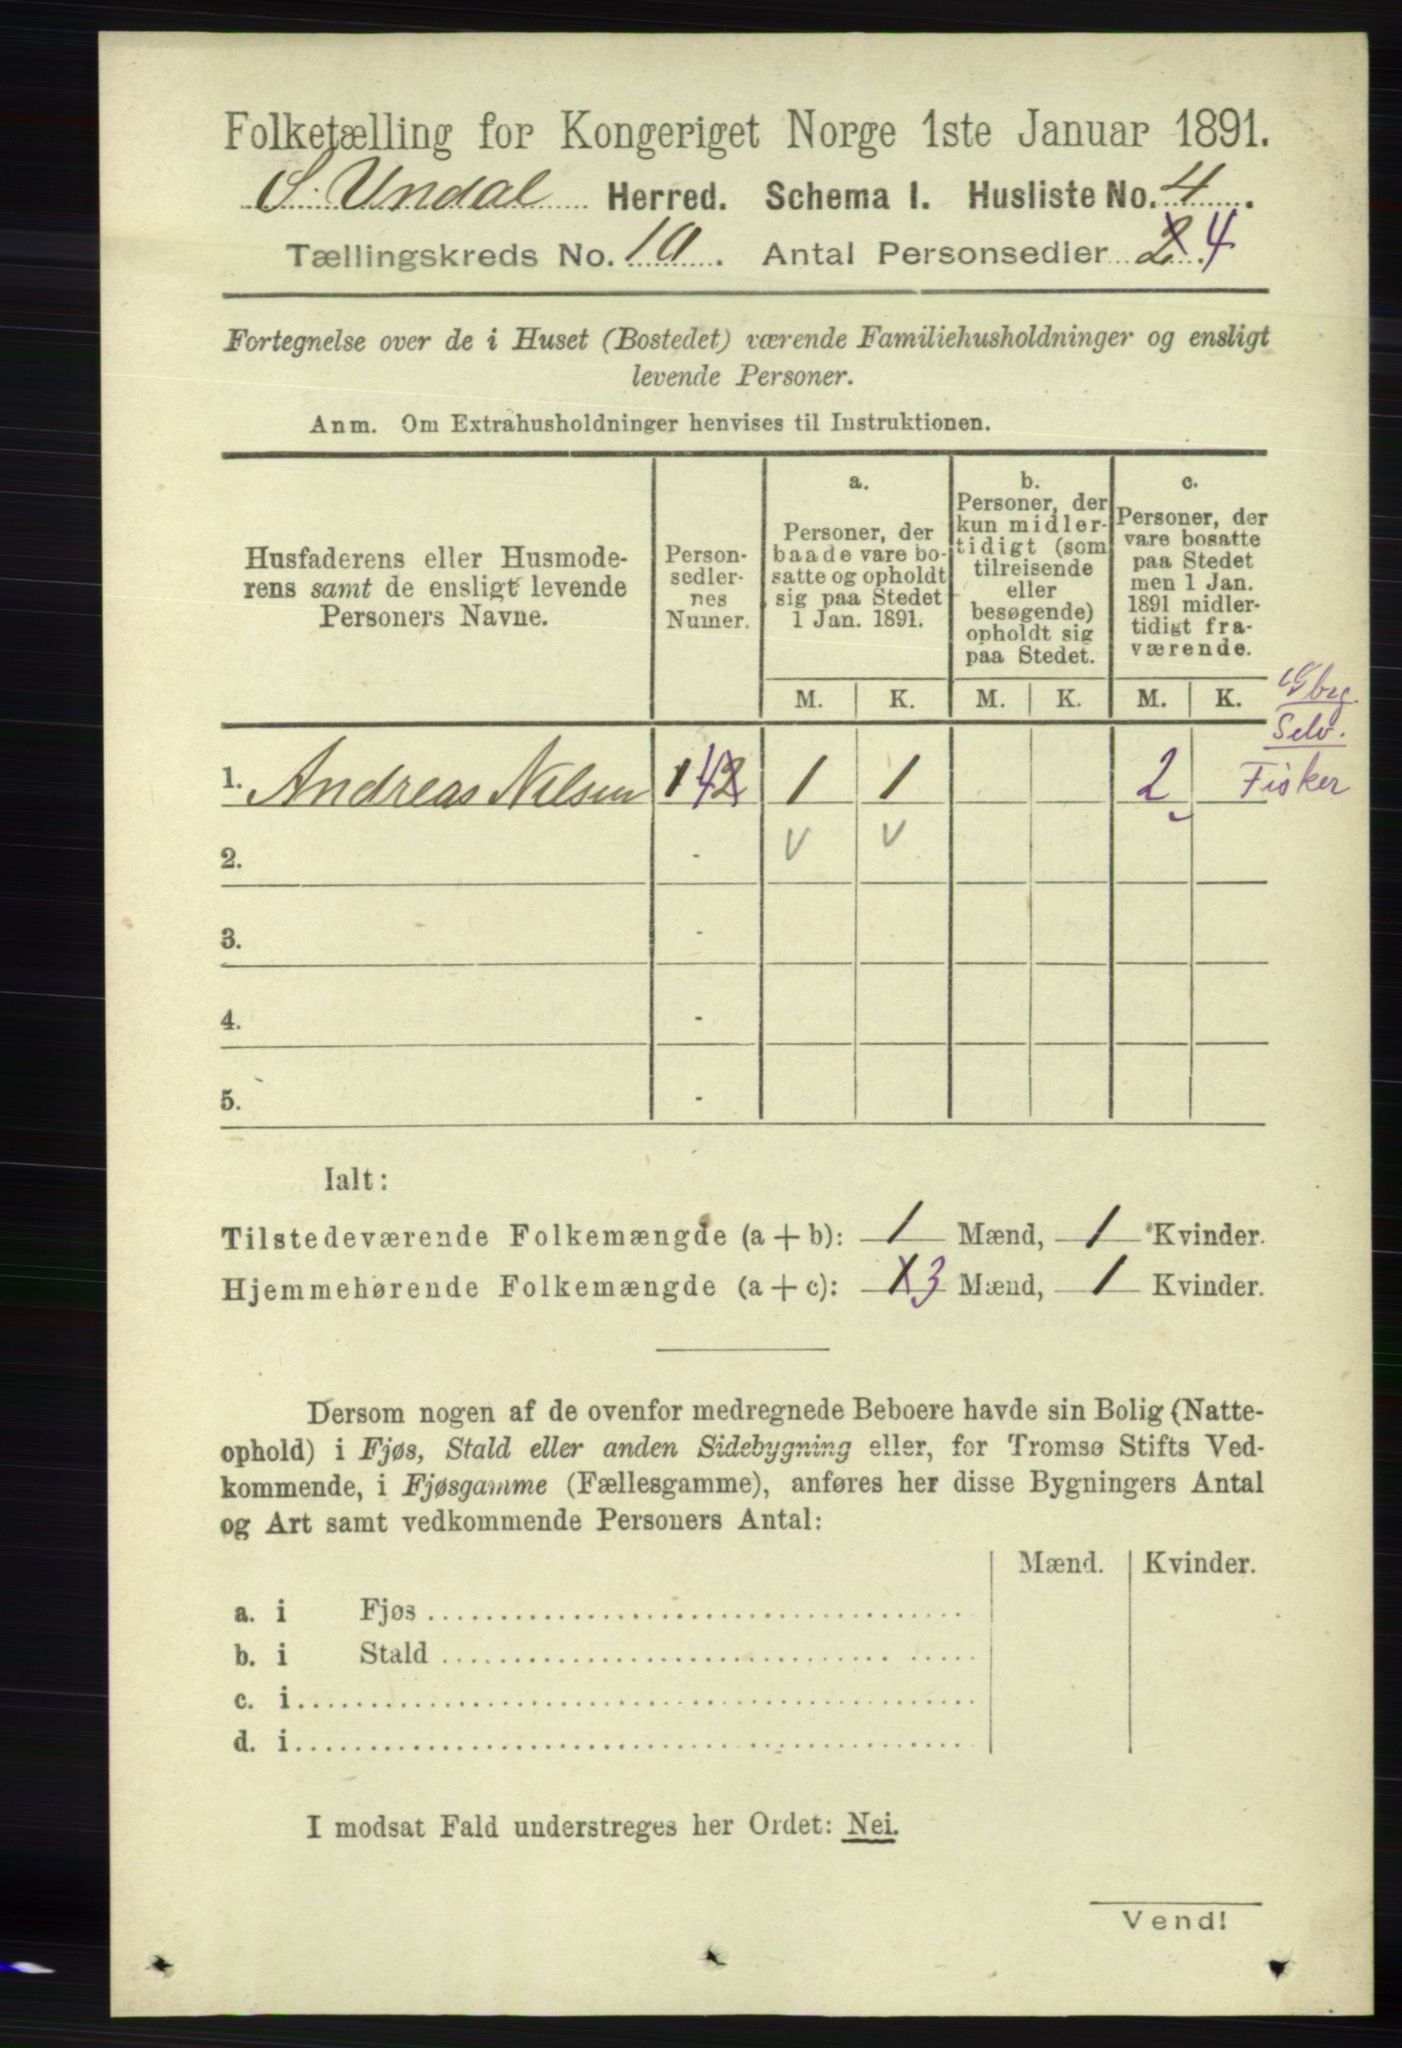 Folketælling for Kongeriget Norge 1ste Januar 1891.
S. Undal Herred. Schema I. Husliste No. 4.
Tællingskreds No. 10. Antal Personsedler 2 4
Fortegnelse over de i Huset (Bostedet) værende Familiehusholdninger og ensligt
levende Personer.
Anm. Om Extrahusholdninger henvises til Instruktionen.
Husfaderens eller Husmode-
rens samt de ensligt levende
Personers Navne.
Person-
sedler-
nes
Numer.
a.
Personer, der
baade vare bo-
satte og opholdt
sig paa Stedet
1 Jan. 1891.
b.
Personer, der
kun midler-
tidigt (som
tilreisende
eller
besøgende)
opholdt sig
paa Stedet.
c.
Personer, der
vare bosatte
paa Stedet
men 1 Jan.
1891 midler-
tidigt fra-
værende.
M. K. M. K. M. K.
Gbrg.
Selv.
1. Andreas Nilsen 1 4 2 1 1 2 Fisker
2. - V V
3. -
4. -
5. -
Ialt:
Tilstedeværende Folkemængde (a + b): 1 Mænd, 1 Kvinder.
Hjemmehørende Folkemængde (a + c): 1 3 Mænd, 1 Kvinder.
Dersom nogen af de ovenfor medregnede Beboere havde sin Bolig (Natte-
ophold) i Fjøs, Stald eller anden Sidebygning eller, for Tromsø Stifts Ved-
kommende, i Fjøsgamme (Fællesgamme), anføres her disse Bygningers Antal
og Art samt vedkommende Personers Antal:
Mænd. Kvinder.
a. i Fjøs
b. i Stald
c. i
d. i
I modsat Fald understreges her Ordet: Nei.
Vend!